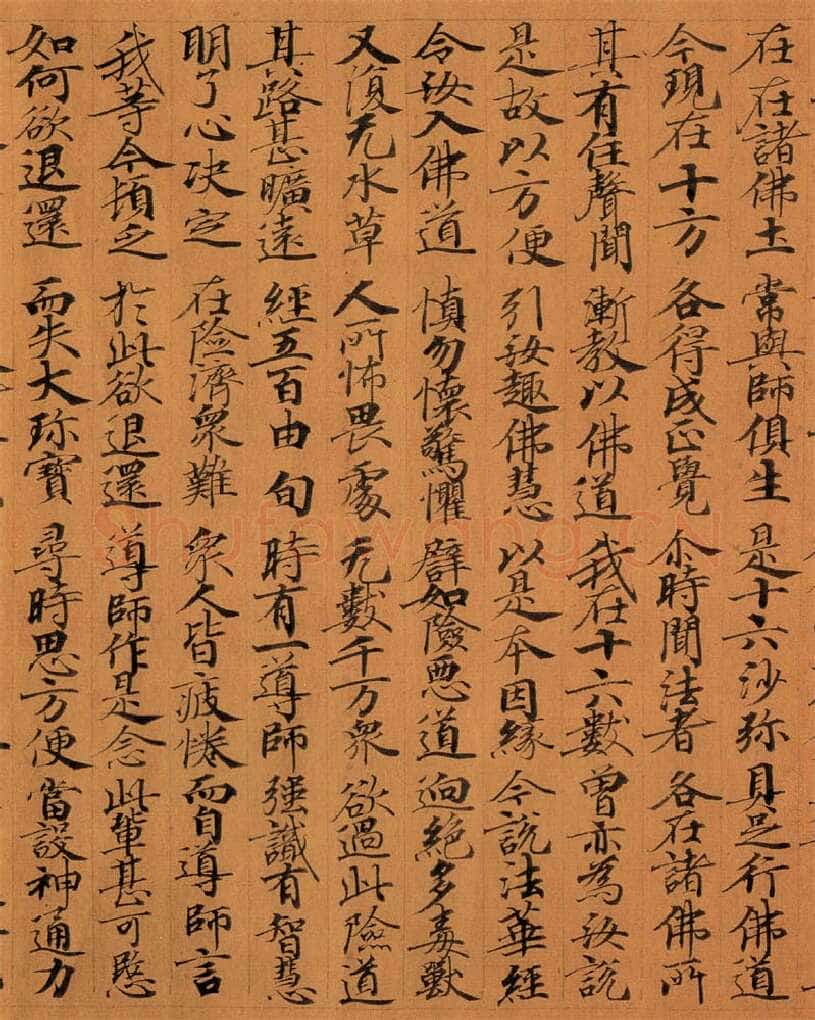 在在諸佛土 常與師俱生 是十六沙弥 具足行佛道
今現在十方 各得成正覺 尒時聞法者 各在諸佛所
其有住聲聞 漸教以佛道 我在十六數 曾亦為汝說
是故以方便 引汝趣佛慧 以是本因緣 今說法華經
令汝入佛道 慎勿懷驚懼 譬如險惡道 逈絕多毒獸
又復无水草 人所怖畏處 无數千万衆 欲過此險道
其路甚曠遠 經五百由旬 時有一導師 強識有智慧
明了心决定 在險濟衆難 衆人皆疲惓 而白導師言
我等今頓乏 於此欲退還 導師作是念 此輩甚可愍
如何欲退還 而失大珎寶 尋時思方便 當設神通力
shufawang.cn